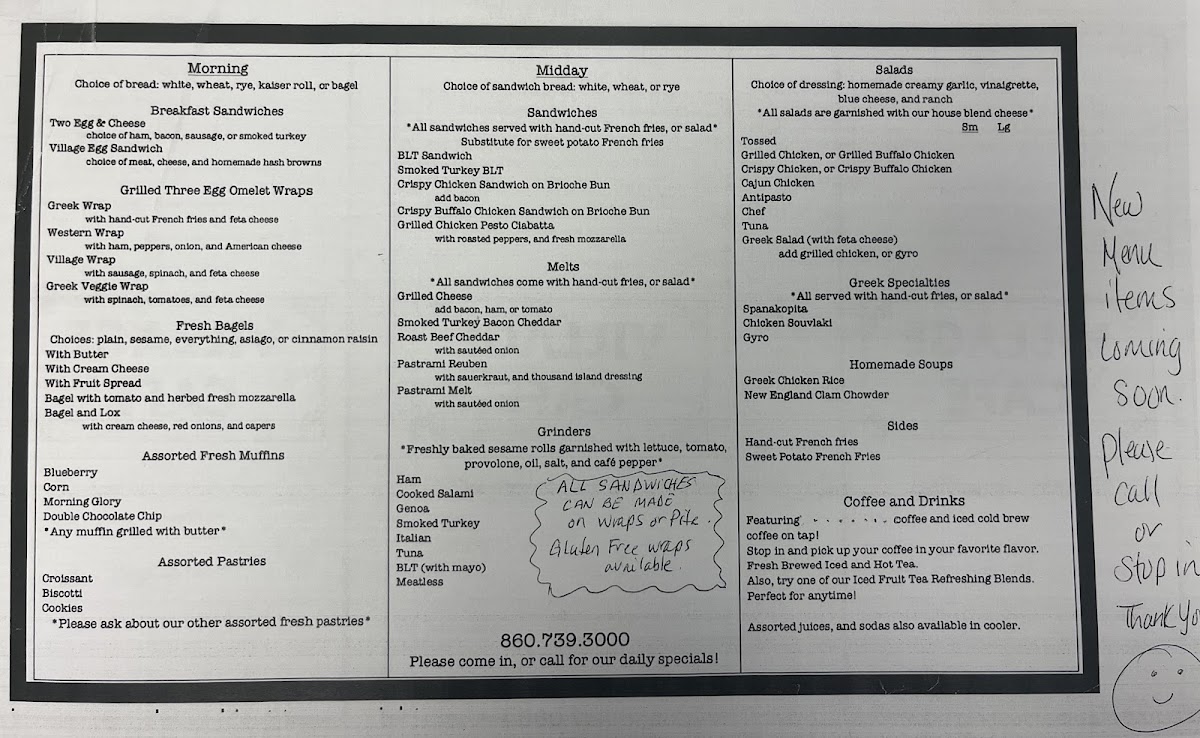 Morning
Choice of bread: white, wheat, rye, kaiser roll, or bagel
Breakfast Sandwiches
Two Egg & Cheese
choice of ham, bacon, sausage, or smoked turkey
Village Egg Sandwich
choice of meat, cheese, and homemade hash browns
Grilled Three Egg Omelet Wraps
Greek Wrap
with hand-cut French fries and feta cheese
Western Wrap
with ham, peppers, onion, and American cheese
Village Wrap
with sausage, spinach, and feta cheese
Greek Veggie Wrap
with spinach, tomatoes, and feta cheese
Fresh Bagels
Choices: plain, sesame, everything, asiago, or cinnamon raisin
With Butter
With Cream Cheese
With Fruit Spread
Bagel with tomato and herbed fresh mozzarella
Bagel and Lox
with cream cheese, red onions, and capers
Assorted Fresh Muffins
Blueberry
Corn
Morning Glory
Double Chocolate Chip
*Any muffin grilled with butter*
Assorted Pastries
Croissant
Biscotti
Cookies
*Please ask about our other assorted fresh pastries*
Midday
Choice of sandwich bread: white, wheat, or rye
Sandwiches
*All sandwiches served with hand-cut French fries, or salad*
Substitute for sweet potato French fries
BLT Sandwich
Smoked Turkey BLT
Crispy Chicken Sandwich on Brioche Bun
add bacon
Crispy Buffalo Chicken Sandwich on Brioche Bun
Grilled Chicken Pesto Ciabatta
with roasted peppers, and fresh mozzarella
Melts
*All sandwiches come with hand-cut fries, or salad*
Grilled Cheese
add bacon, ham, or tomato
Smoked Turkey Bacon Cheddar
Roast Beef Cheddar
with sautéed onion
Pastrami Reuben
with sauerkraut, and thousand island dressing
Pastrami Melt
with sautéed onion
Grinders
*Freshly baked sesame rolls garnished with lettuce, tomato,
provolone, oil, salt, and café pepper*
Ham
Cooked Salami
Genoa
Smoked Turkey
Italian
Tuna
BLT (with mayo)
Meatless
ALL SANDWICHES
CAN BE MADE
on wraps or Pita.
Gluten Free wraps
available.
860.739.3000
Please come in, or call for our daily specials!
Salads
Choice of dressing: homemade creamy garlic, vinaigrette,
blue cheese, and ranch
*All salads are garnished with our house blend cheese*
Sm Lg
Tossed
Grilled Chicken, or Grilled Buffalo Chicken
Crispy Chicken, or Crispy Buffalo Chicken
Cajun Chicken
Antipasto
Chef
Tuna
Greek Salad (with feta cheese)
add grilled chicken, or gyro
Greek Specialties
*All served with hand-cut fries, or salad*
Spanakopita
Chicken Souvlaki
Gyro
Homemade Soups
Greek Chicken Rice
New England Clam Chowder
Sides
Hand-cut French fries
Sweet Potato French Fries
Coffee and Drinks
Featuring coffee and iced cold brew
coffee on tap!
Stop in and pick up your coffee in your favorite flavor.
Fresh Brewed Iced and Hot Tea.
Also, try one of our Iced Fruit Tea Refreshing Blends.
Perfect for anytime!
Assorted juices, and sodas also available in cooler.
New
Menu
items
coming
soon.
please
call
or
stop in
Thank Yo